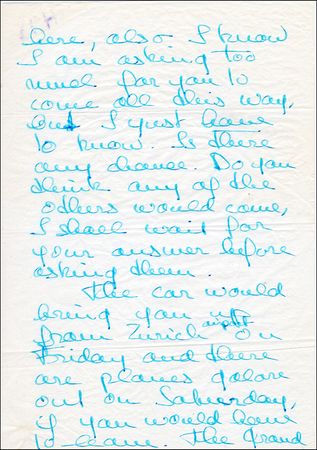 here, also I know
I am asking too
much for you to
come all this way,
but I just have
to know. Is there
any chance. Do you
think any of the
others would come,
I shall wait for
your answer before
asking them.
The car would
bring you up
from Zurich airport on
Friday and there
are planes galore
out on Saturday,
if you would have
to leave. The Grand